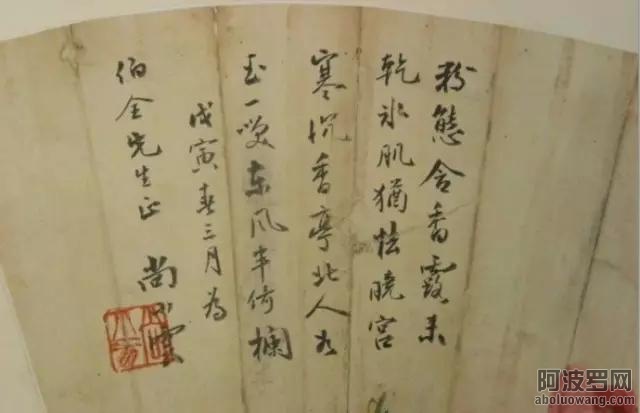 粉態含香露未
乾冰肌猶怯曉宮
寒沉香亭北人如
玉一笑東風半倚欄
戊寅春三月為
伯全先生正 尚小雲
阿波罗网
aboluowang.com